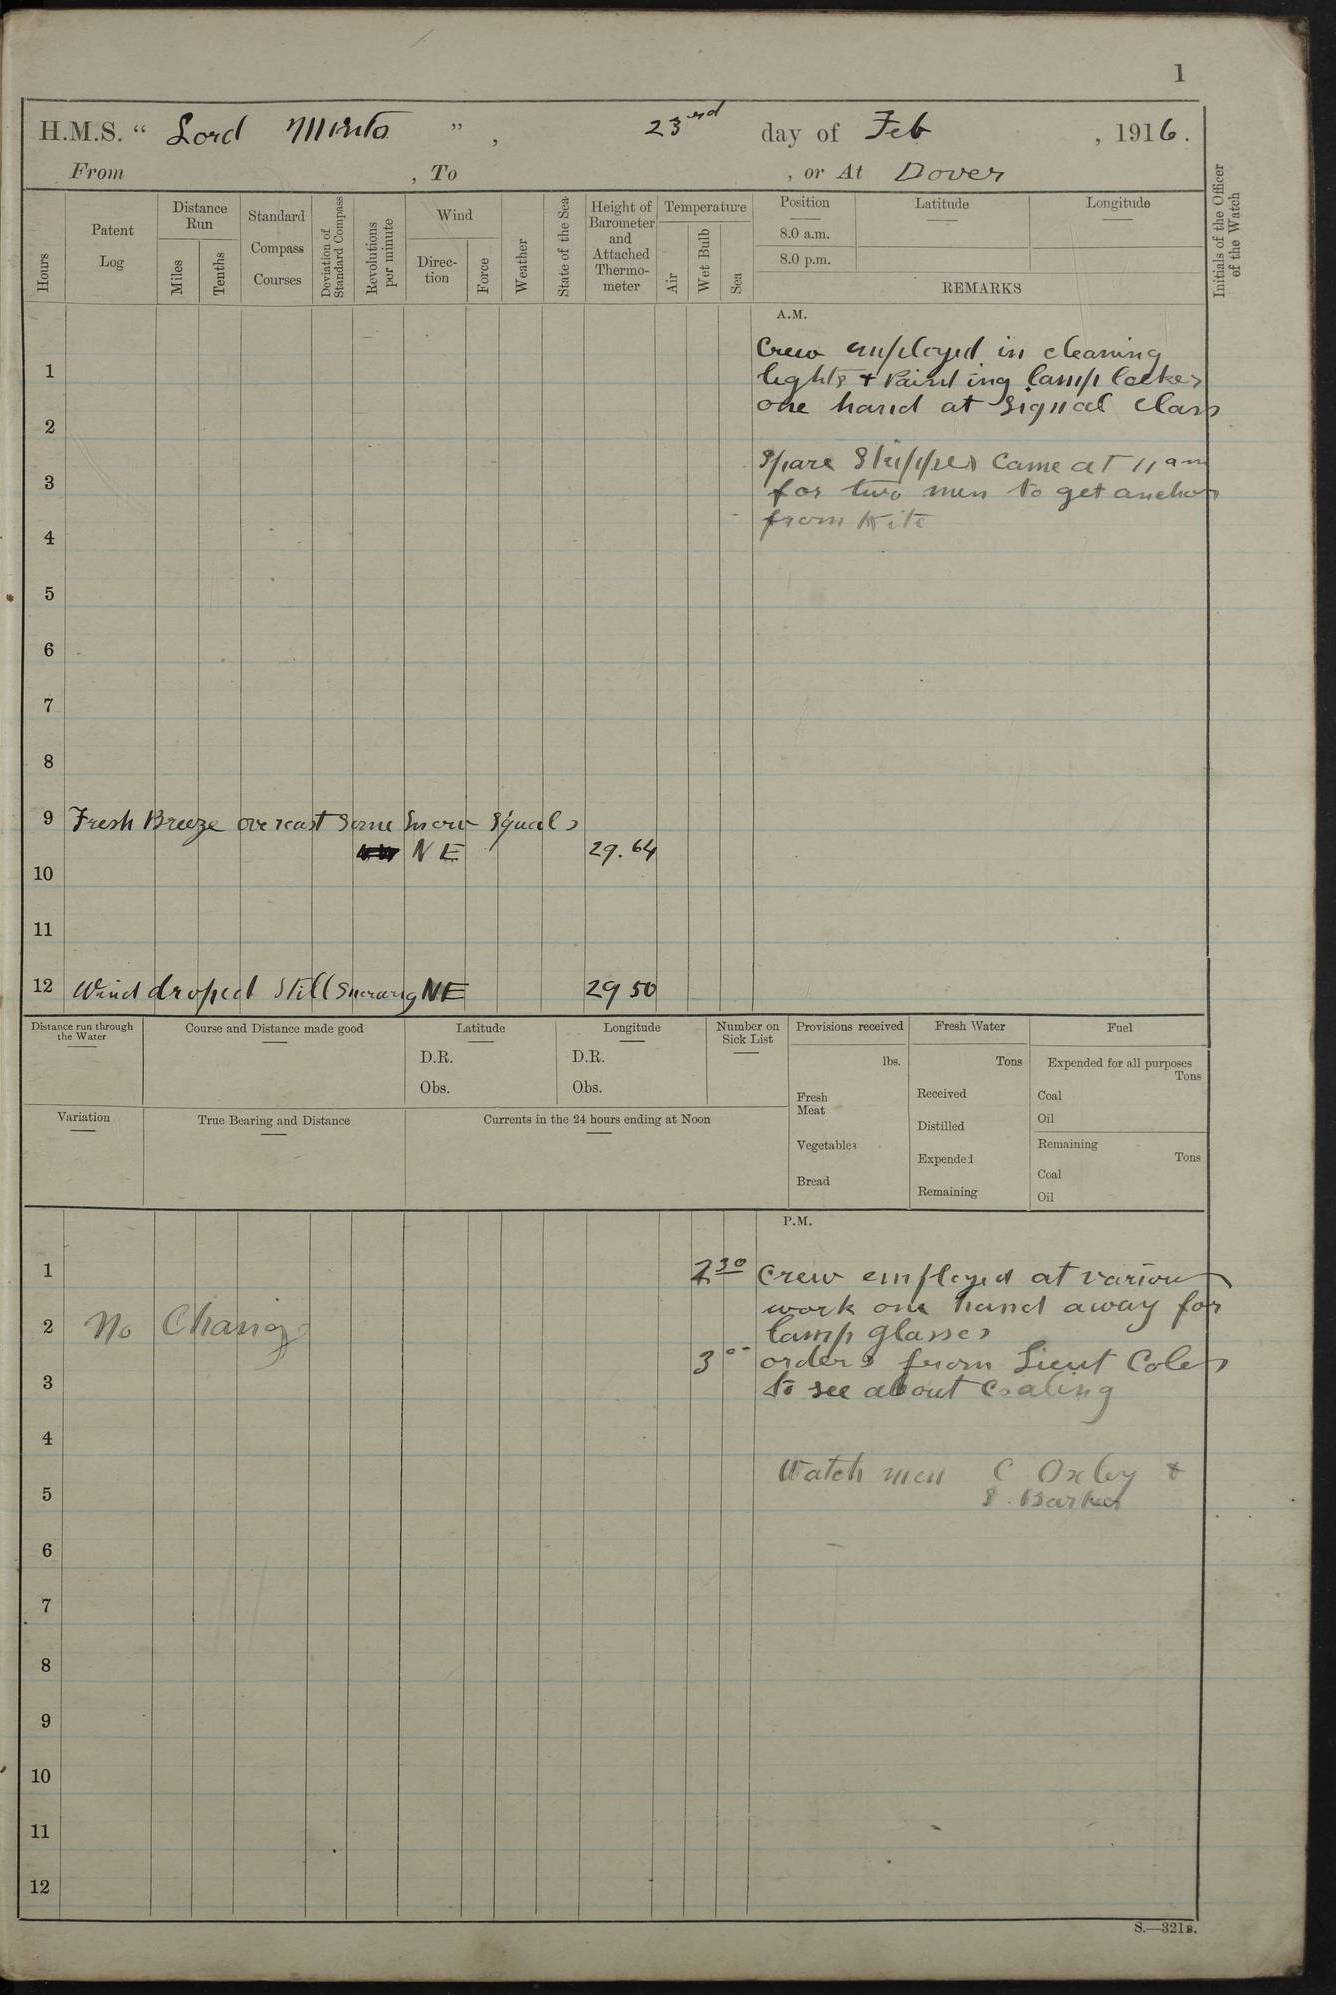 1
H.M.S. “ Lord Minto ” , 23rd day of Feb , 1916.
From , To , or At Dover
Hours
Patent Log
Distance Run
Miles
Tenths
Standard Compass Courses
Deviation of Standard Compass
Revolutions per minute
Wind
Direc-tion
Force
Weather
State of the Sea
Height of Barometer and Attached Thermo-meter
Temperature
Air
Wet Bulb
Sea
Position
8.0 a.m.
8.0 p.m.
Latitude
Longitude
REMARKS
Initials of the Officer of the Watch
A.M.
Crew employed in cleaning
1
lights + Painting lamp locker
one hand at Signal Class
2
Spare Skipper Came at 11 am
3
for two men to get anchor
from Kite
4
5
6
7
8
9 Fresh Breeze overcast some Snow Squals
NE 29.64
10
11
12 Wind droped Still Snowing NE 29 50
Distance run through the Water
Course and Distance made good
Latitude
D.R.
Obs.
Longitude
D.R.
Obs.
Number on Sick List
Provisions received
lbs.
Fresh Meat
Vegetables
Bread
Fresh Water
Tons
Received
Distilled
Expended
Remaining
Fuel
Expended for all purposes
Tons
Coal
Oil
Remaining
Tons
Coal
Oil
Variation
True Bearing and Distance
Currents in the 24 hours ending at Noon
P.M.
1 2 30 Crew employed at various
work one hand away for
2 No Change lamp glasses
3 00 orders from Lieut Coles
3 to see about Coaling
4
Watch men C Oxley +
5 Barker
6
7
8
9
10
11
12
S.—321B.